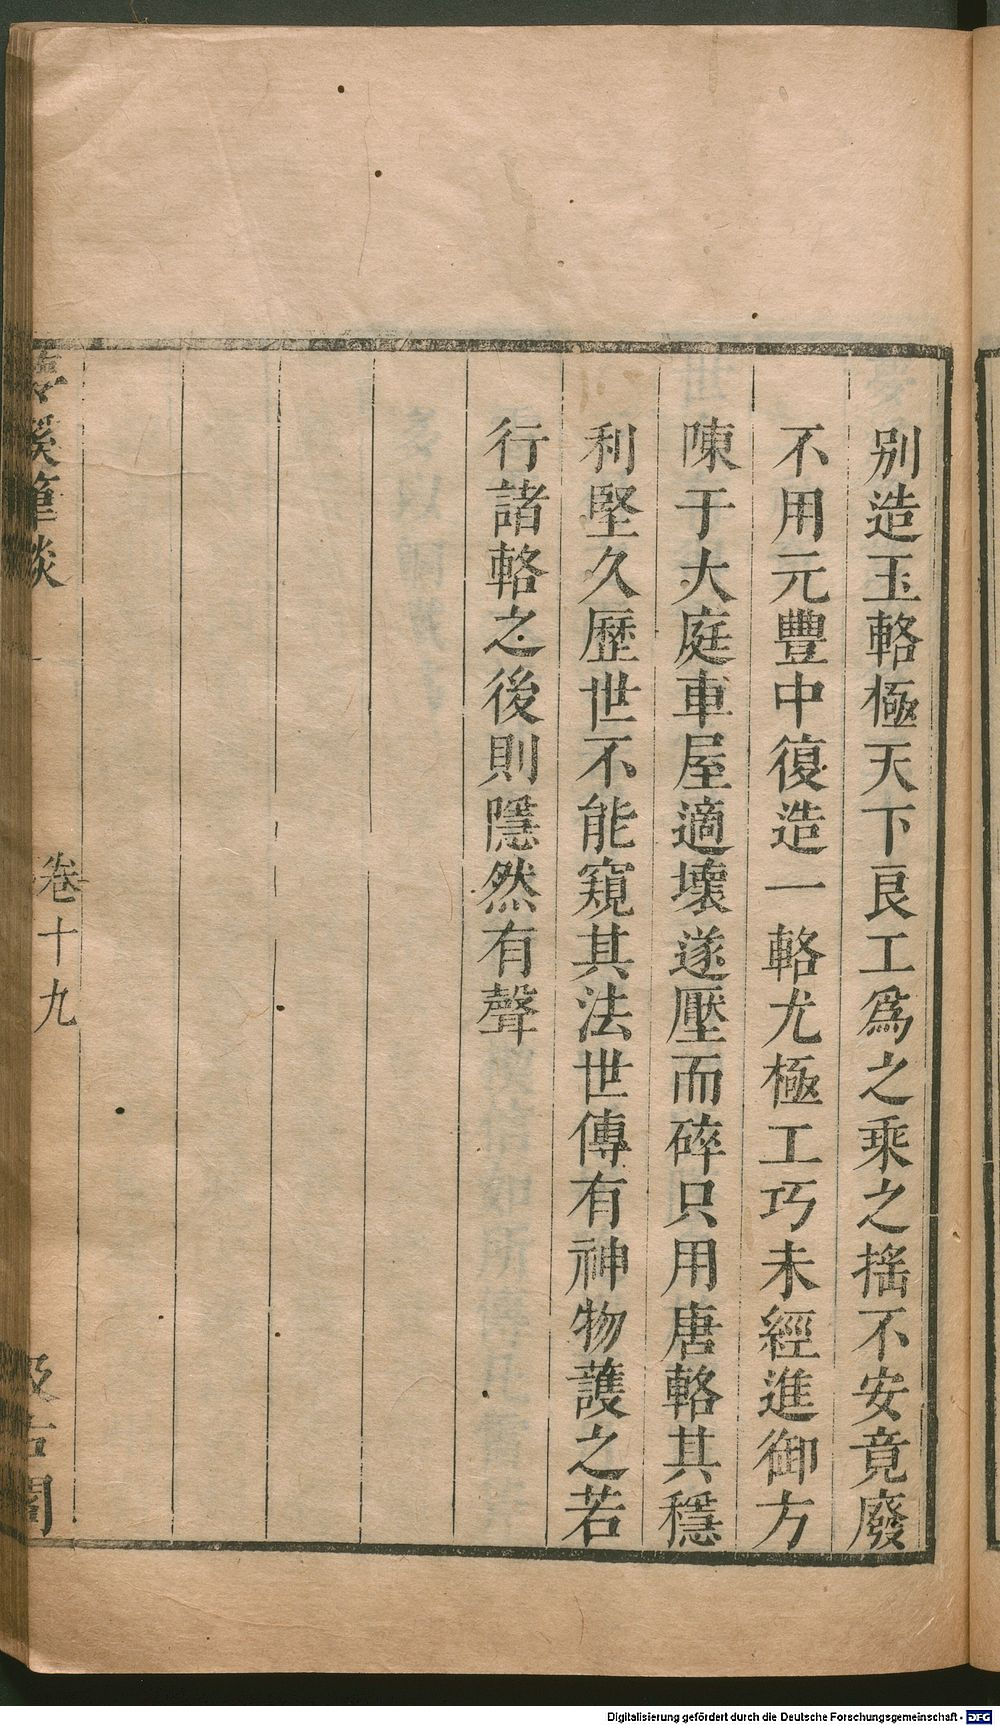 别造玉輅極天下良工爲之乘之揺不安竟廢
不用元豐中復造一輅尤極工巧未經進御方
陳于大庭車屋適壞遂壓而碎只用唐輅其穩
利堅久歷世不能窺其法世傳有神物護之若
行諸輅之後則隱然有聲
夢溪筆談
卷十九
汲古閣
Digitalisierung gefördert durch die Deutsche Forschungsgemeinschaft - DFG